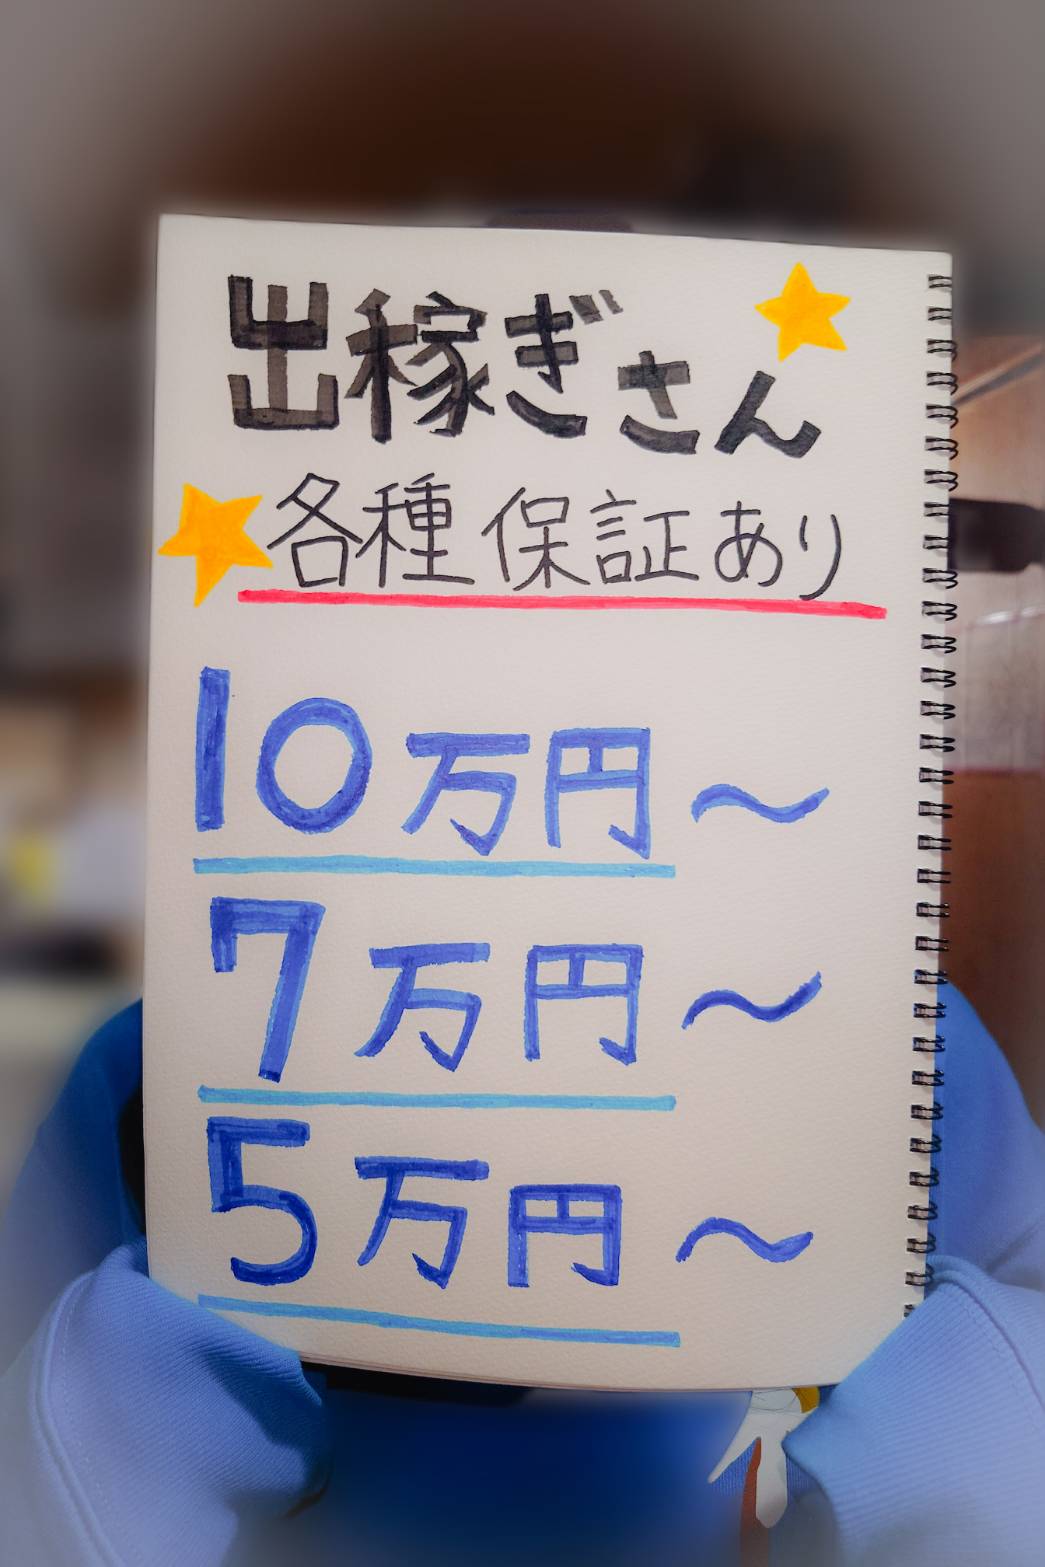 出稼ぎさん
各種保証あり
10万円〜
7万円〜
5万円〜